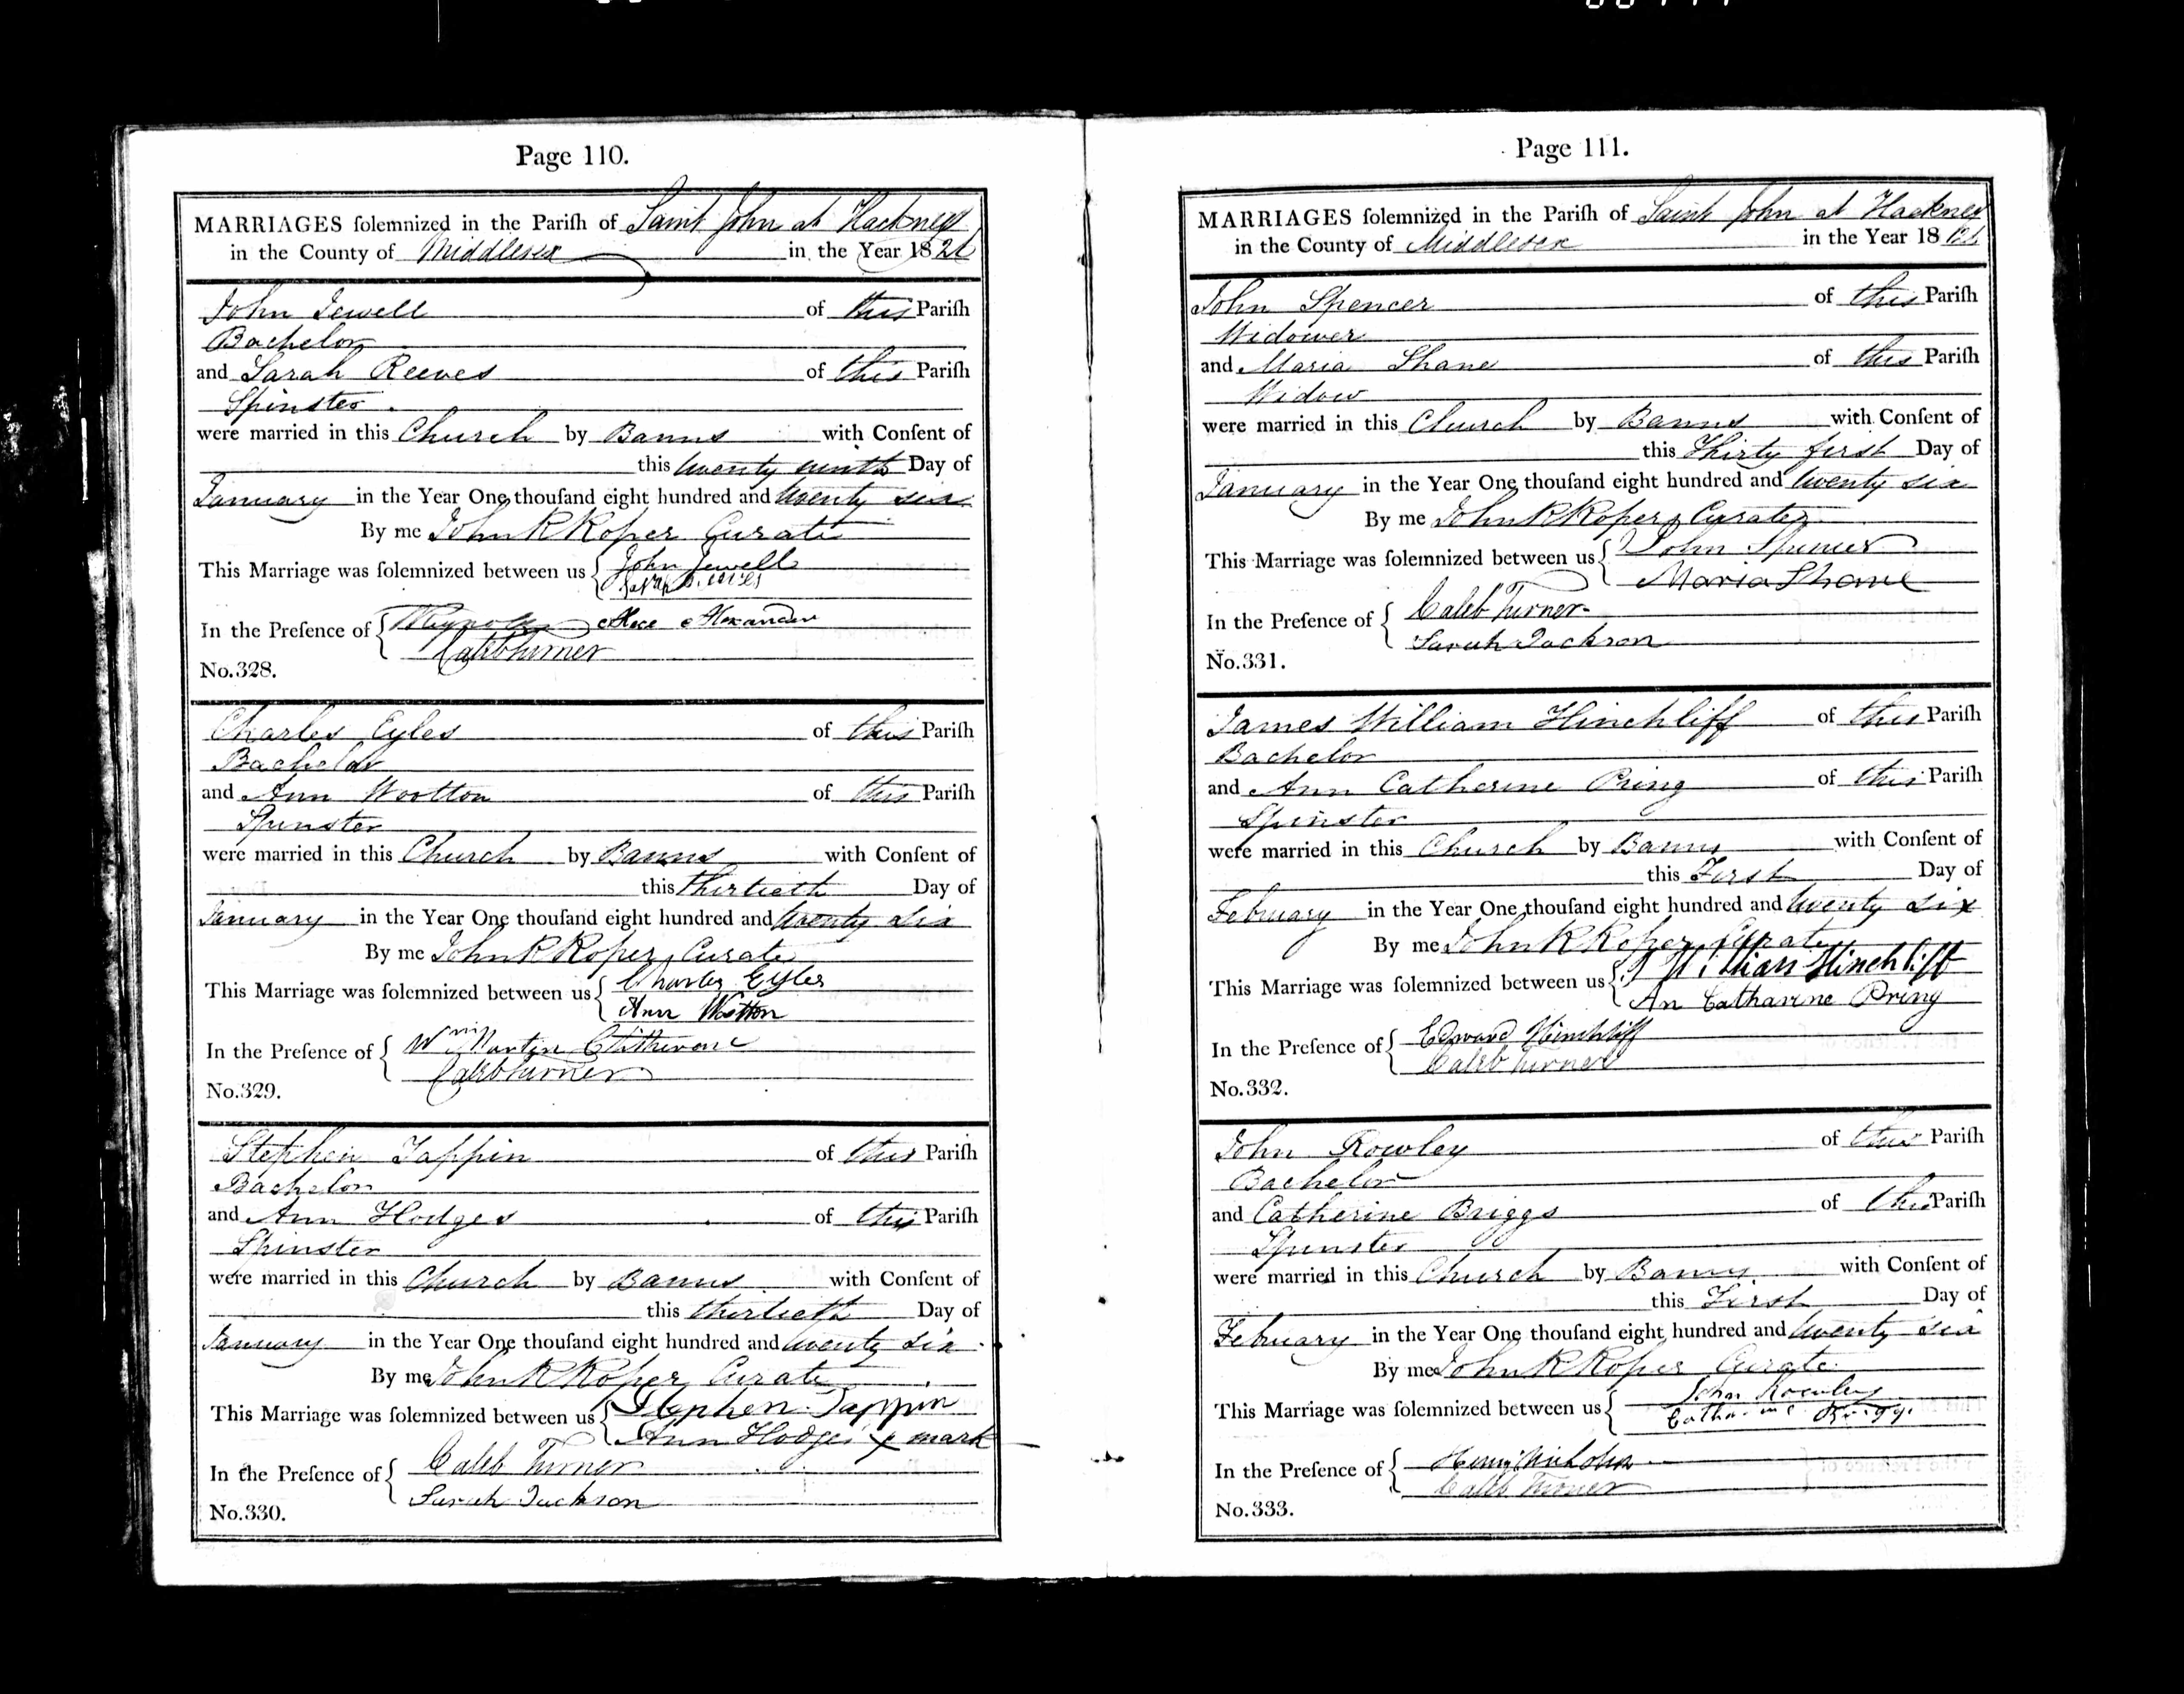 Page 110.
MARRIAGES ſolemnized in the Pariſh of Saint John at Hackney
in the County of Middlesex in the Year 1826
John Jewell of this Pariſh
Bachelor
and Sarah Reeves of this Pariſh
Spinster
were married in this Church by Banns with Conſent of
this twenty ninth Day of
January in the Year One thouſand eight hundred and twenty six
By me John R Roper Curate
This Marriage was ſolemnized between us John Jewell
In the Preſence of Alexander
Caleb Turner
No.328.
Charles Eyles of this Pariſh
Bachelor
and Ann Wootton of this Pariſh
Spinster
were married in this Church by Banns with Conſent of
this thirtieth Day of
January in the Year One thouſand eight hundred and twenty six
By me John R Roper Curate
This Marriage was ſolemnized between us Charles Eyles
Ann Wootton
In the Preſence of Wm Martin
Caleb Turner
No.329.
Stephen Tappin of this Pariſh
Bachelor
and Ann Hodges of this Pariſh
Spinster
were married in this Church by Banns with Conſent of
this thirtieth Day of
January in the Year One thouſand eight hundred and twenty six
By me John R Roper Curate
This Marriage was ſolemnized between us Stephen Tappin
Ann Hodges x mark
In the Preſence of Caleb Turner
Sarah Jackson
No.330.
Page 111.
MARRIAGES ſolemnized in the Pariſh of Saint John at Hackney
in the County of Middlesex in the Year 1826
John Spencer of this Pariſh
Widower
and Maria Shane of this Pariſh
Widow
were married in this Church by Banns with Conſent of
this Thirty first Day of
January in the Year One thouſand eight hundred and twenty six
By me John R Roper Curate
This Marriage was ſolemnized between us John Spencer
Maria Shane
In the Preſence of Caleb Turner
Sarah Jackson
No.331.
James William Hinchliff of this Pariſh
Bachelor
and Ann Catherine Pring of this Pariſh
Spinster
were married in this Church by Banns with Conſent of
this First Day of
February in the Year One thouſand eight hundred and twenty six
By me John R Roper Curate
This Marriage was ſolemnized between us J William Hinchliff
An Catharine Pring
In the Preſence of Edward Hinchliff
Caleb Turner
No.332.
John Rowley of this Pariſh
Bachelor
and Catherine Briggs of this Pariſh
Spinster
were married in this Church by Banns with Conſent of
this First Day of
February in the Year One thouſand eight hundred and twenty six
By me John R Roper Curate
This Marriage was ſolemnized between us John Rowley
Catharine Briggs
In the Preſence of Henry Nicholson
Caleb Turner
No.333.